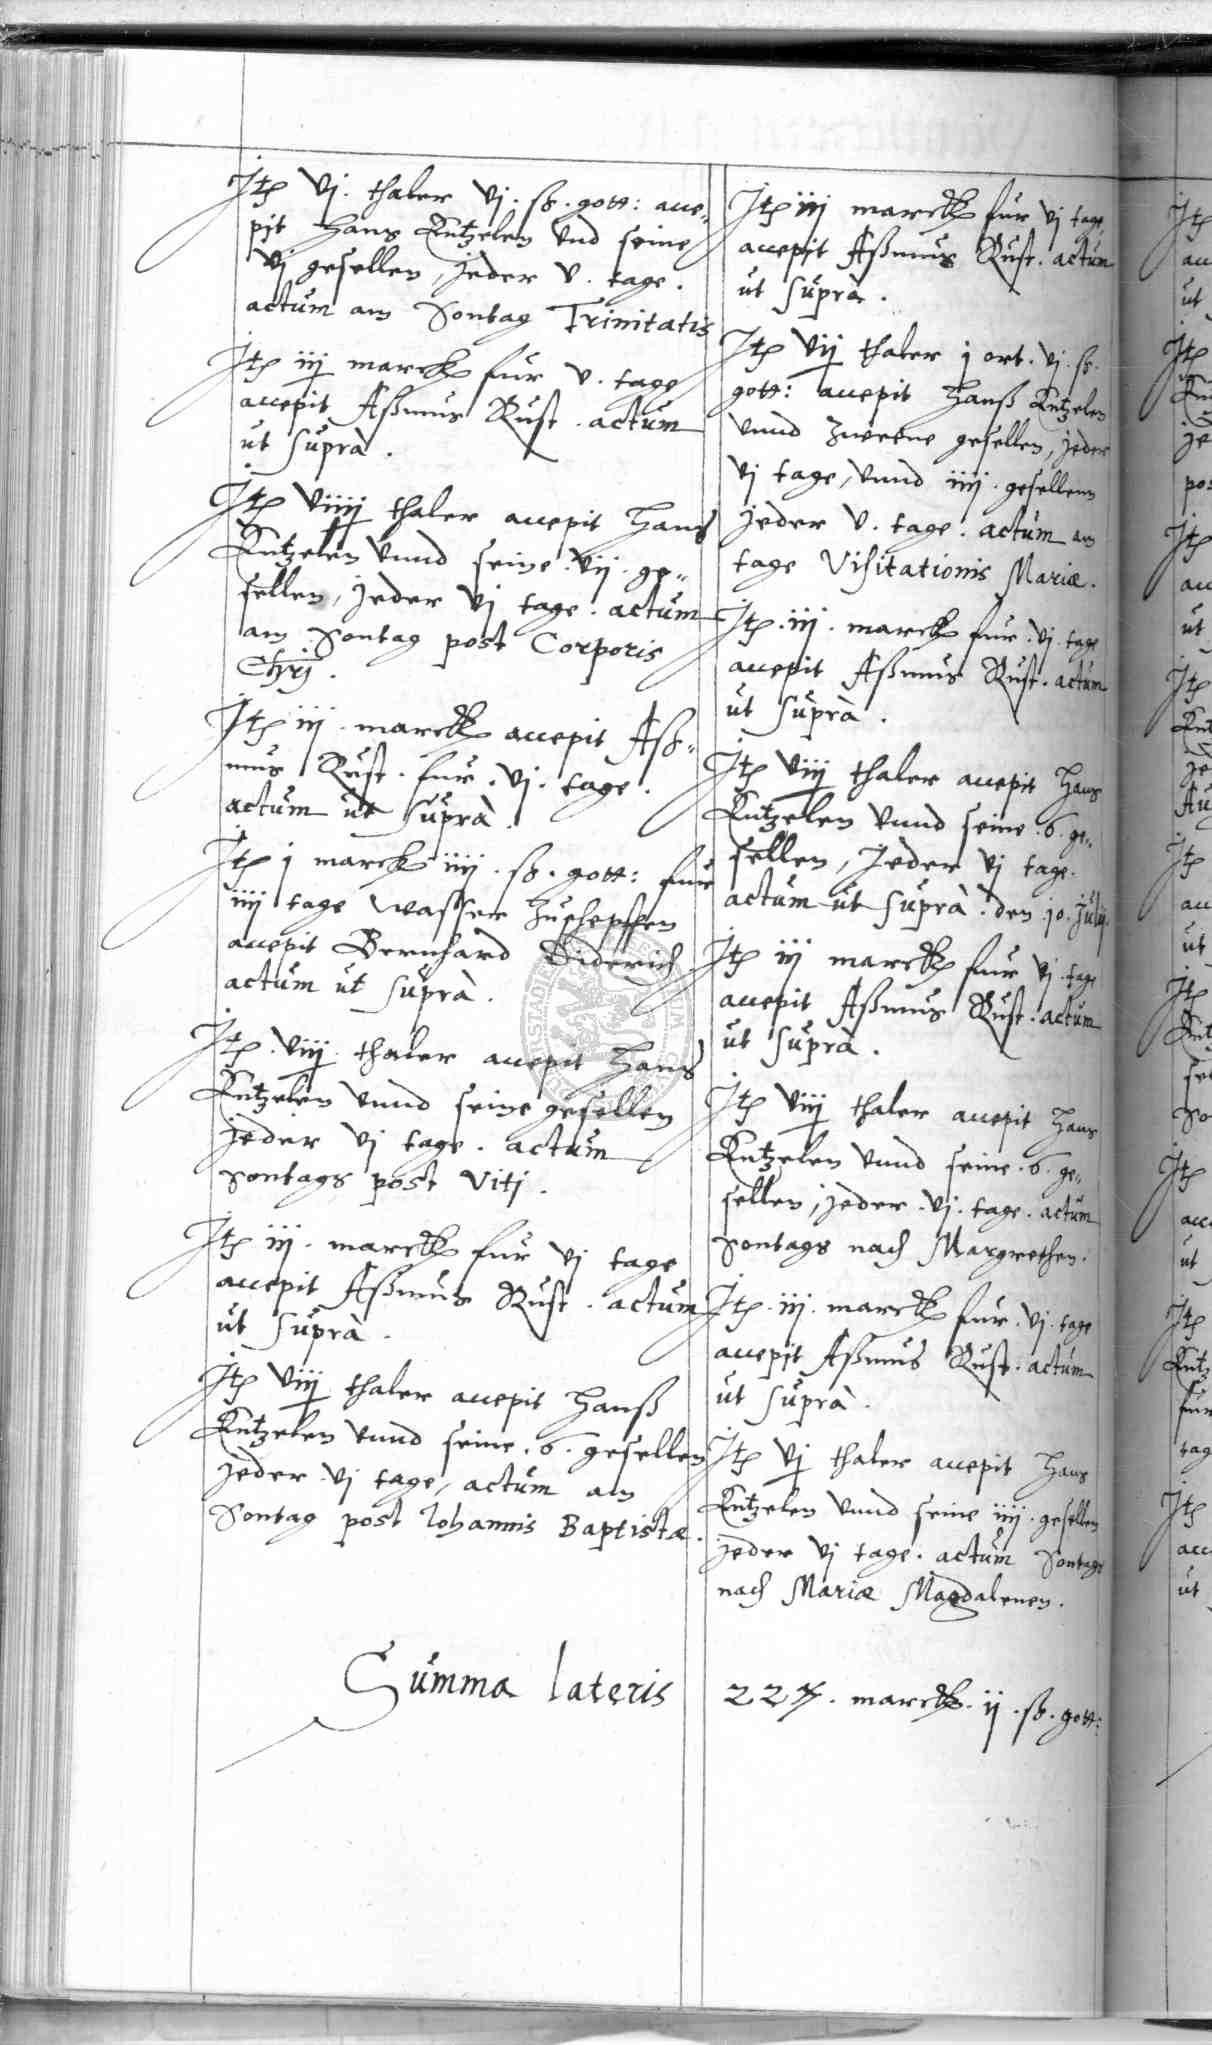 Itꝫ vj. thaler vj. ß. gott: acce-
pit Hans Kutzeleu vnd seine
vj gesellen, jeder v. tage.
actum am Sontag Trinitatis
Itꝫ iij marck fur v. tage
accepit Aßmus Rust. actum
ut suprà.
Itꝫ viiij thaler accepit Hans
Kutzeleu vnnd seine. vij. ge-
sellen, jeder vj tage. actum
am Sontag post Corporis
Chrj.
Itꝫ iij. marck accepit Aß-
mus Rust. fur. vj. tage.
actum ut suprà.
Itꝫ j marck iiij. ß. gott: fur
iiij tage wasser zuschepffen
accepit Bernhard Diderich
actum ut suprà.
Itꝫ. viij thaler accepit Hans
Kutzeleu vnnd seine gesellen
jeder vj tage. actum
Sontags post Viti.
Itꝫ iij. marck fur vj tage
accepit Aßmus Rust. actum
ut suprà.
Itꝫ viij thaler accepit Hanß
Kutzeleu vnnd seine. 6. gesellen
jeder vj tage, actum am
Sontag post Iohannis Baptistæ.
Itꝫ iij marck fur vj tage
accepit Aßmus Rust. actum
ut suprà.
Itꝫ vij thaler j ort. vj. ß.
gott: accepit Hanß Kutzeleu
vnnd zweene gesellen, jeder
vj tage, vnnd iiij. gesellenn
jeder v. tage. actum am
tage Visitationis Mariæ.
Itꝫ. iij. marck fur. vj. tage
accepit Aßmus Rust. actum
ut suprà.
Itꝫ viij thaler accepit Hans
Kutzeleu vnnd seine. 6. ge-
sellen, Jeder vj tage.
actum ut suprà. den 10. Julij.
Itꝫ iij marck fur vj tage
accepit Aßmus Rust. actum
ut suprà.
Itꝫ viij thaler accepit Hans
Kutzeleu vnnd seine. 6. ge-
sellen, jeder. vj. tage. actum
Sontags nach Margrethen.
Itꝫ. iij. marck fur. vj. tage
accepit Aßmus Rust. actum
ut suprà.
Itꝫ vj thaler accepit Hans
Kutzeleu vnnd seine iiij. gesellen
jeder vj tage. actum Sontags
nach Mariæ Magdalenen.
Summa lateris 227. marck. ij. ß. gott: